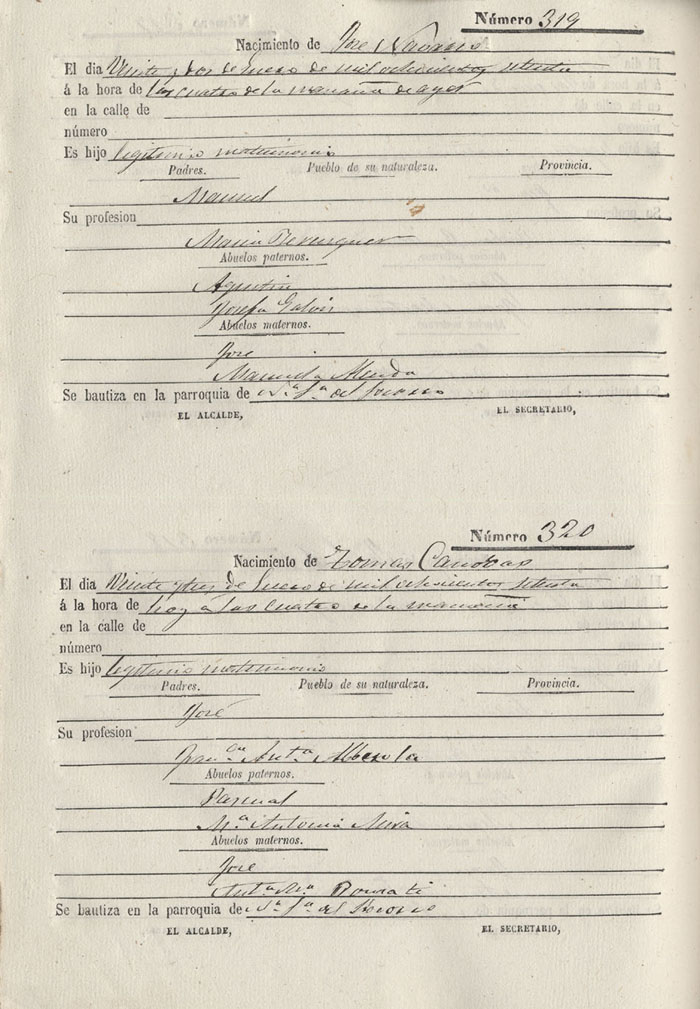 Número 319
Nacimiento de José Navarro
El dia Veinte y dos de Enero de mil ochocientos setenta
á la hora de las cuatro de la mañana de ayer
en la calle de
número
Es hijo legitimo matrimonio
Padres. Pueblo de su naturaleza. Provincia.
Manuel
Su profesion
Maria Berenguer
Abuelos paternos.
Agustin
Josefa Galvis
Abuelos maternos.
José
Manuela Alenda
Se bautiza en la parroquia de N.ª S.ª del Socorro
EL ALCALDE, EL SECRETARIO,
Número 320
Nacimiento de Tomas Canovas
El dia Veinte y tres de Enero de mil ochocientos setenta
á la hora de hoy á las cuatro de la mañana
en la calle de
número
Es hijo legitimo matrimonio
Padres. Pueblo de su naturaleza. Provincia.
José
Su profesion
Ant.ª
Abuelos paternos.
Pascual
M.ª Antonia Mira
Abuelos maternos.
José
Ant.ª M.ª
Se bautiza en la parroquia de N.ª S.ª del Socorro
EL ALCALDE, EL SECRETARIO,